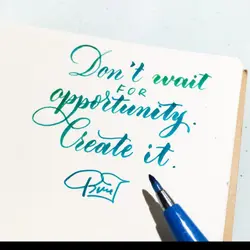 Don't wait
FOR
opportunity.
Create it.